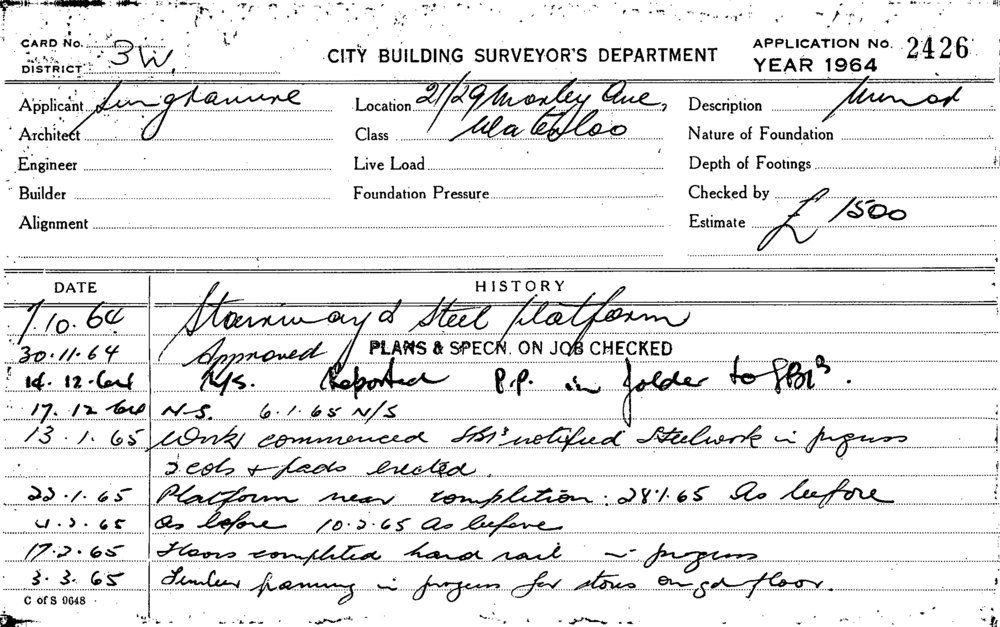 CARD No.
DISTRICT 3W.
CITY BUILDING SURVEYOR'S DEPARTMENT
APPLICATION No. 2426
YEAR 1964
Applicant
Location 21/29 Morley Ave,
Description
Architect
Class Waterloo
Nature of Foundation
Engineer
Live Load
Depth of Footings
Builder
Foundation Pressure
Checked by
Alignment
Estimate £ 1500
DATE HISTORY
7.10.64 Stairway & Steel platform
30.11.64 Approved PLANS & SPECN. ON JOB CHECKED
14.12.64 N/S. Reported P.P. in folder to SBIs.
17.12.64 N.S. 6.1.65 N/S
13.1.65 Work commenced SBIs notified Steelwork in progress
2 cols & pads erected.
22.1.65 Platform near completion. 28.1.65 As before
4.2.65 As before 10.2.65 As before
17.2.65 Floors completed hand rail in progress
3.3.65 Timber framing in progress for stores on gd floor.
C of S 9648